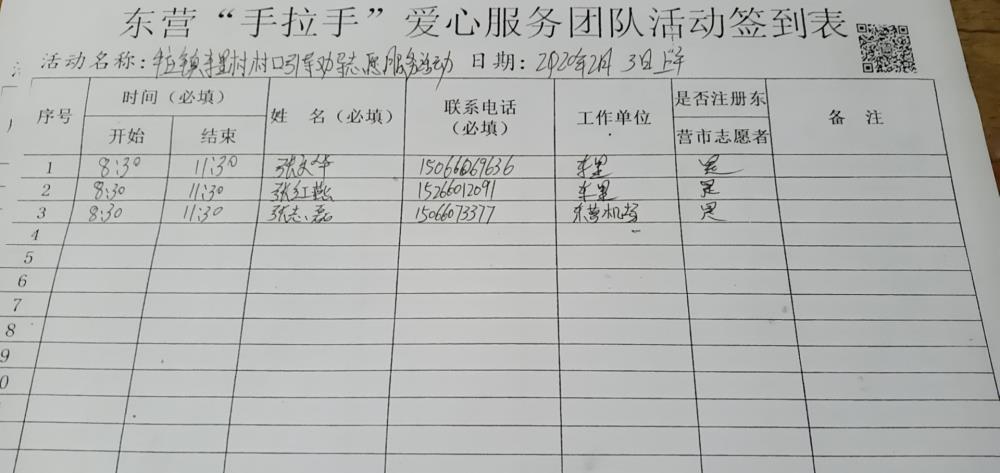 东营“手拉手”爱心服务团队活动签到表
活动名称: 村村口引导劝导志愿服务活动 日期: 2020年2月3日上午
序号 时间(必填) 姓 名(必填) 联系电话(必填) 工作单位 是否注册东营市志愿者 备 注
开始 结束
1 8:30 11:30 张文华 15066069636 车里 是
2 8:30 11:30 张红燕 15266012091 车里 是
3 8:30 11:30 张志磊 15066073377 东营机场 是
4
5
6
7
8
9
0